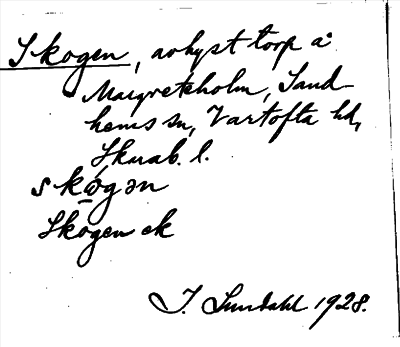 Skogen, avhyst torp å
Margreteholm, Sand-
hems sn, Vartofta hd,
Skarab. l.
skogən
Skogen ek
J. Sundahl 1928.